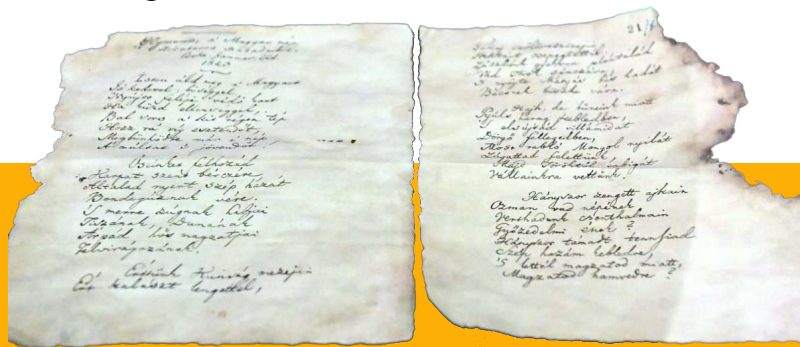 Hymnus, a' Magyar nép
zivataros századaiból.
Cseke, Januar. 22d.
1823
Isten áldd meg a' Magyart
Jó kedvvel, bőséggel,
Nyújts feléje védő kart
Ha küzd ellenséggel;
Bal sors a' kit régen tép
Hozz rá víg esztendőt,
Megbűnhödte már e' nép
A' multat 's jövendőt!
Őseinket felhozád
Kárpát szent bérczére,
Általad nyert szép hazát
Bendegúznak vére,
'S merre zúgnak habjai
Tiszának, Dunának
Árpád hős magzatjai
Felvirágozának.
Értünk Kunság mezején
Ért kalászt lengettél,
21/
Tokaj szőlővesszején
Nektárt csepegtettél.
Zászlónk gyakran plántálád
Vad török sánczára,
'S nyögte Mátyás bús hadát
Bécsnek büszke vára.
Hajh, de bűneink miatt
Gyúlt harag kebledben,
'S elsújtád villámidat
Dörgő fellegedben,
Most rabló Mongol nyilát
Zúgattad felettünk,
Majd töröktől rabigát
Vállainkra vettünk.
Hányszor zengett ajkain
Ozman vad népének
Vert hadunk csonthalmain
Győzedelmi ének?
Hányszor támadt tennfiad
Szép hazám kebledre,
'S lettél magzatod miatt
Magzatod hamvedre?